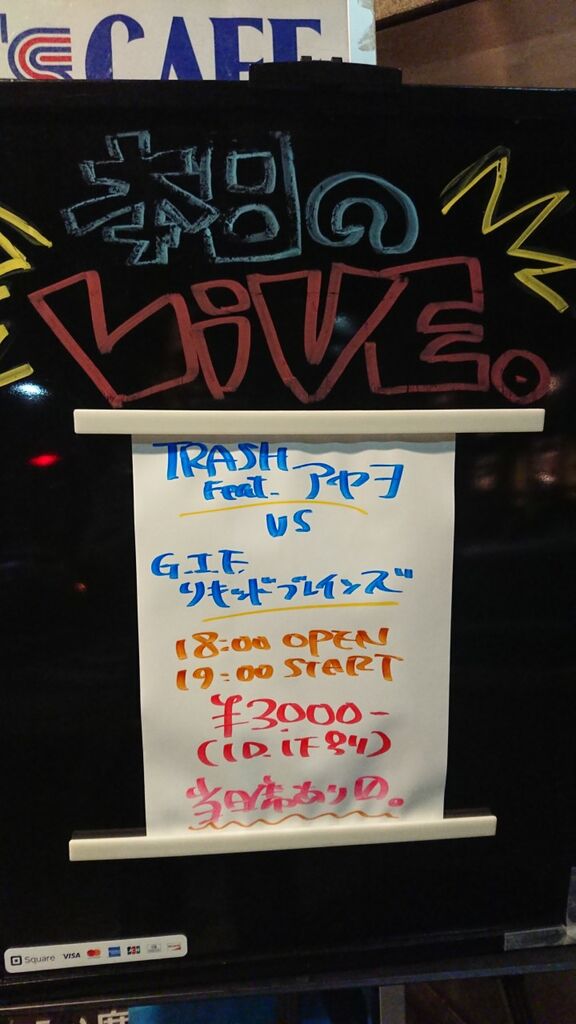 'S CAFE
本日の
LiVE。
TRASH
Feat. アヤヲ
VS
G.I.F.
リキッドブレインズ
18:00 OPEN
19:00 START
¥3000-
当日席あり〼。
Square VISA